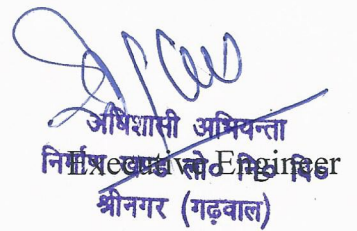 अधिशासी अभियन्ता
निर्माण खण्ड लो० नि० वि०
Executive Engineer
श्रीनगर (गढ़वाल)